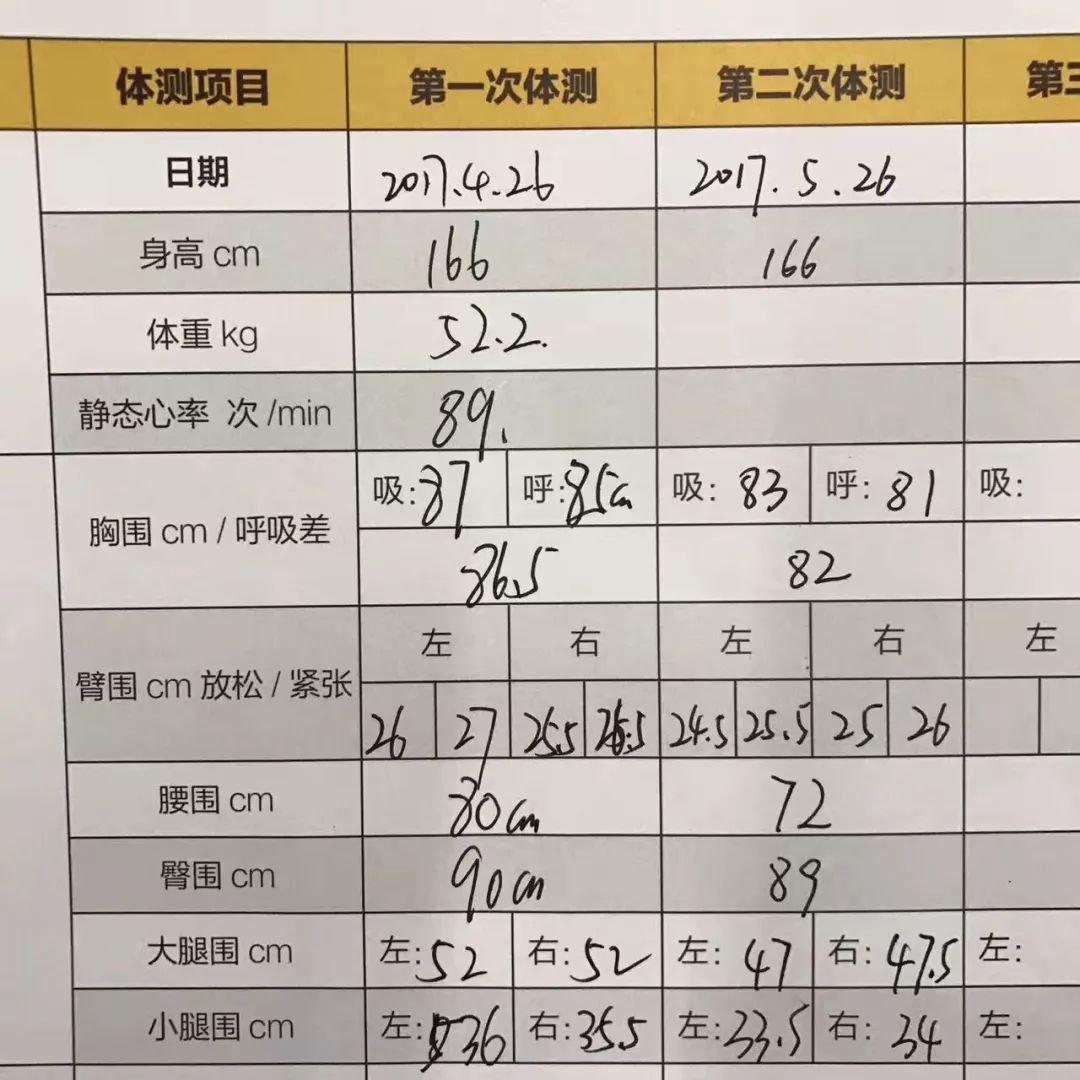 体测项目 第一次体测 第二次体测 第三
日期 2017.4.26 2017.5.26
身高 cm 166 166
体重 kg 52.2.
静态心率 次 /min 89.
吸: 87 呼: 85cm 吸: 83 呼: 81 吸:
胸围 cm / 呼吸差
86.5 82
左 右 左 右 左
臂围 cm 放松 / 紧张
26 27 25.5 26.5 24.5 25.5 25 26
腰围 cm 80cm 72
臀围 cm 90cm 89
大腿围 cm 左: 52 右: 52 左: 47 右: 47.5 左:
小腿围 cm 左: 36 右: 35.5 左: 33.5 右: 34 左: